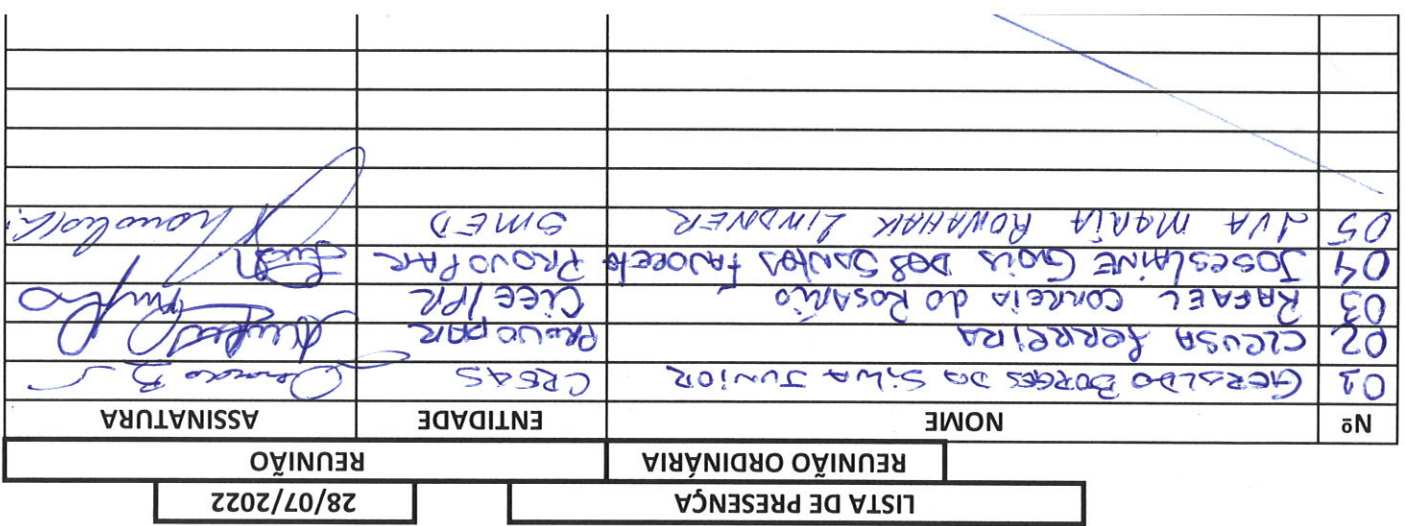 LISTA DE PRESENÇA 28/07/2022
REUNIÃO ORDINÁRIA REUNIÃO
Nº NOME ENTIDADE ASSINATURA
01 GERALDO BORGES DA SILVA JUNIOR CREAS
02 CLEUSA FERREIRA PROVOPAR
03 RAFAEL CORREIA do ROSARIO CIEE/PR
04 JOSESLAINE GOIS DOS SANTOS FAVORETO PROVOPAR
05 IVA MARIA ROWAHAK LINDNER SMED